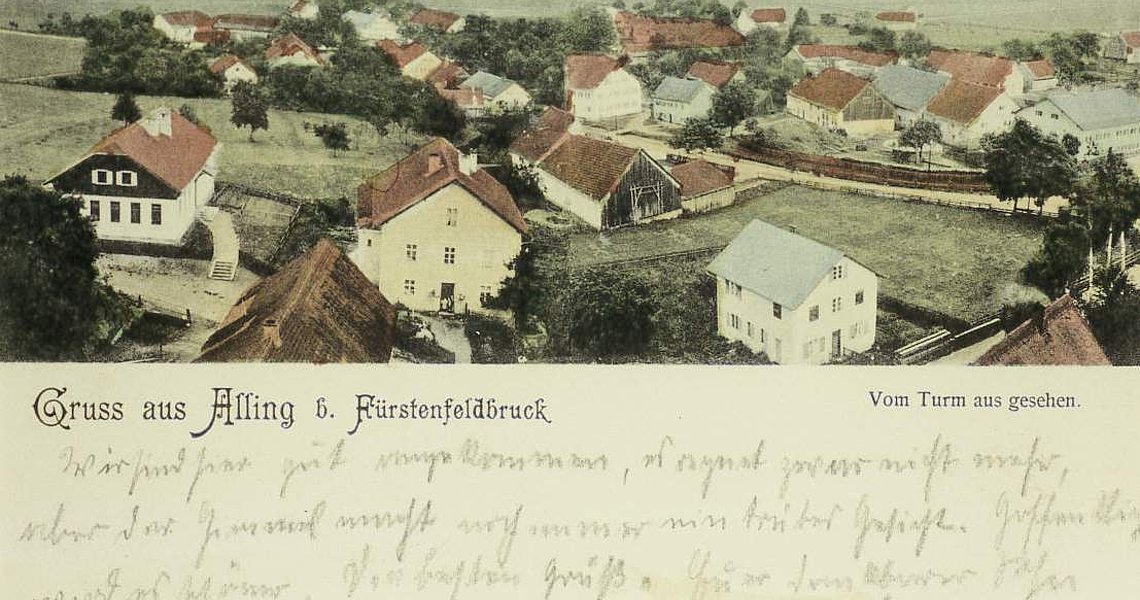 Gruss aus Alling b. Fürstenfeldbruck
Vom Turm aus gesehen.
Wir sind hier gut angekommen, es regnet zwar nicht mehr,
aber der Himmel macht noch immer ein trübes Gesicht. Hoffentlich
wird es schöner. Die besten Grüße. Euer dankbarer Sohn